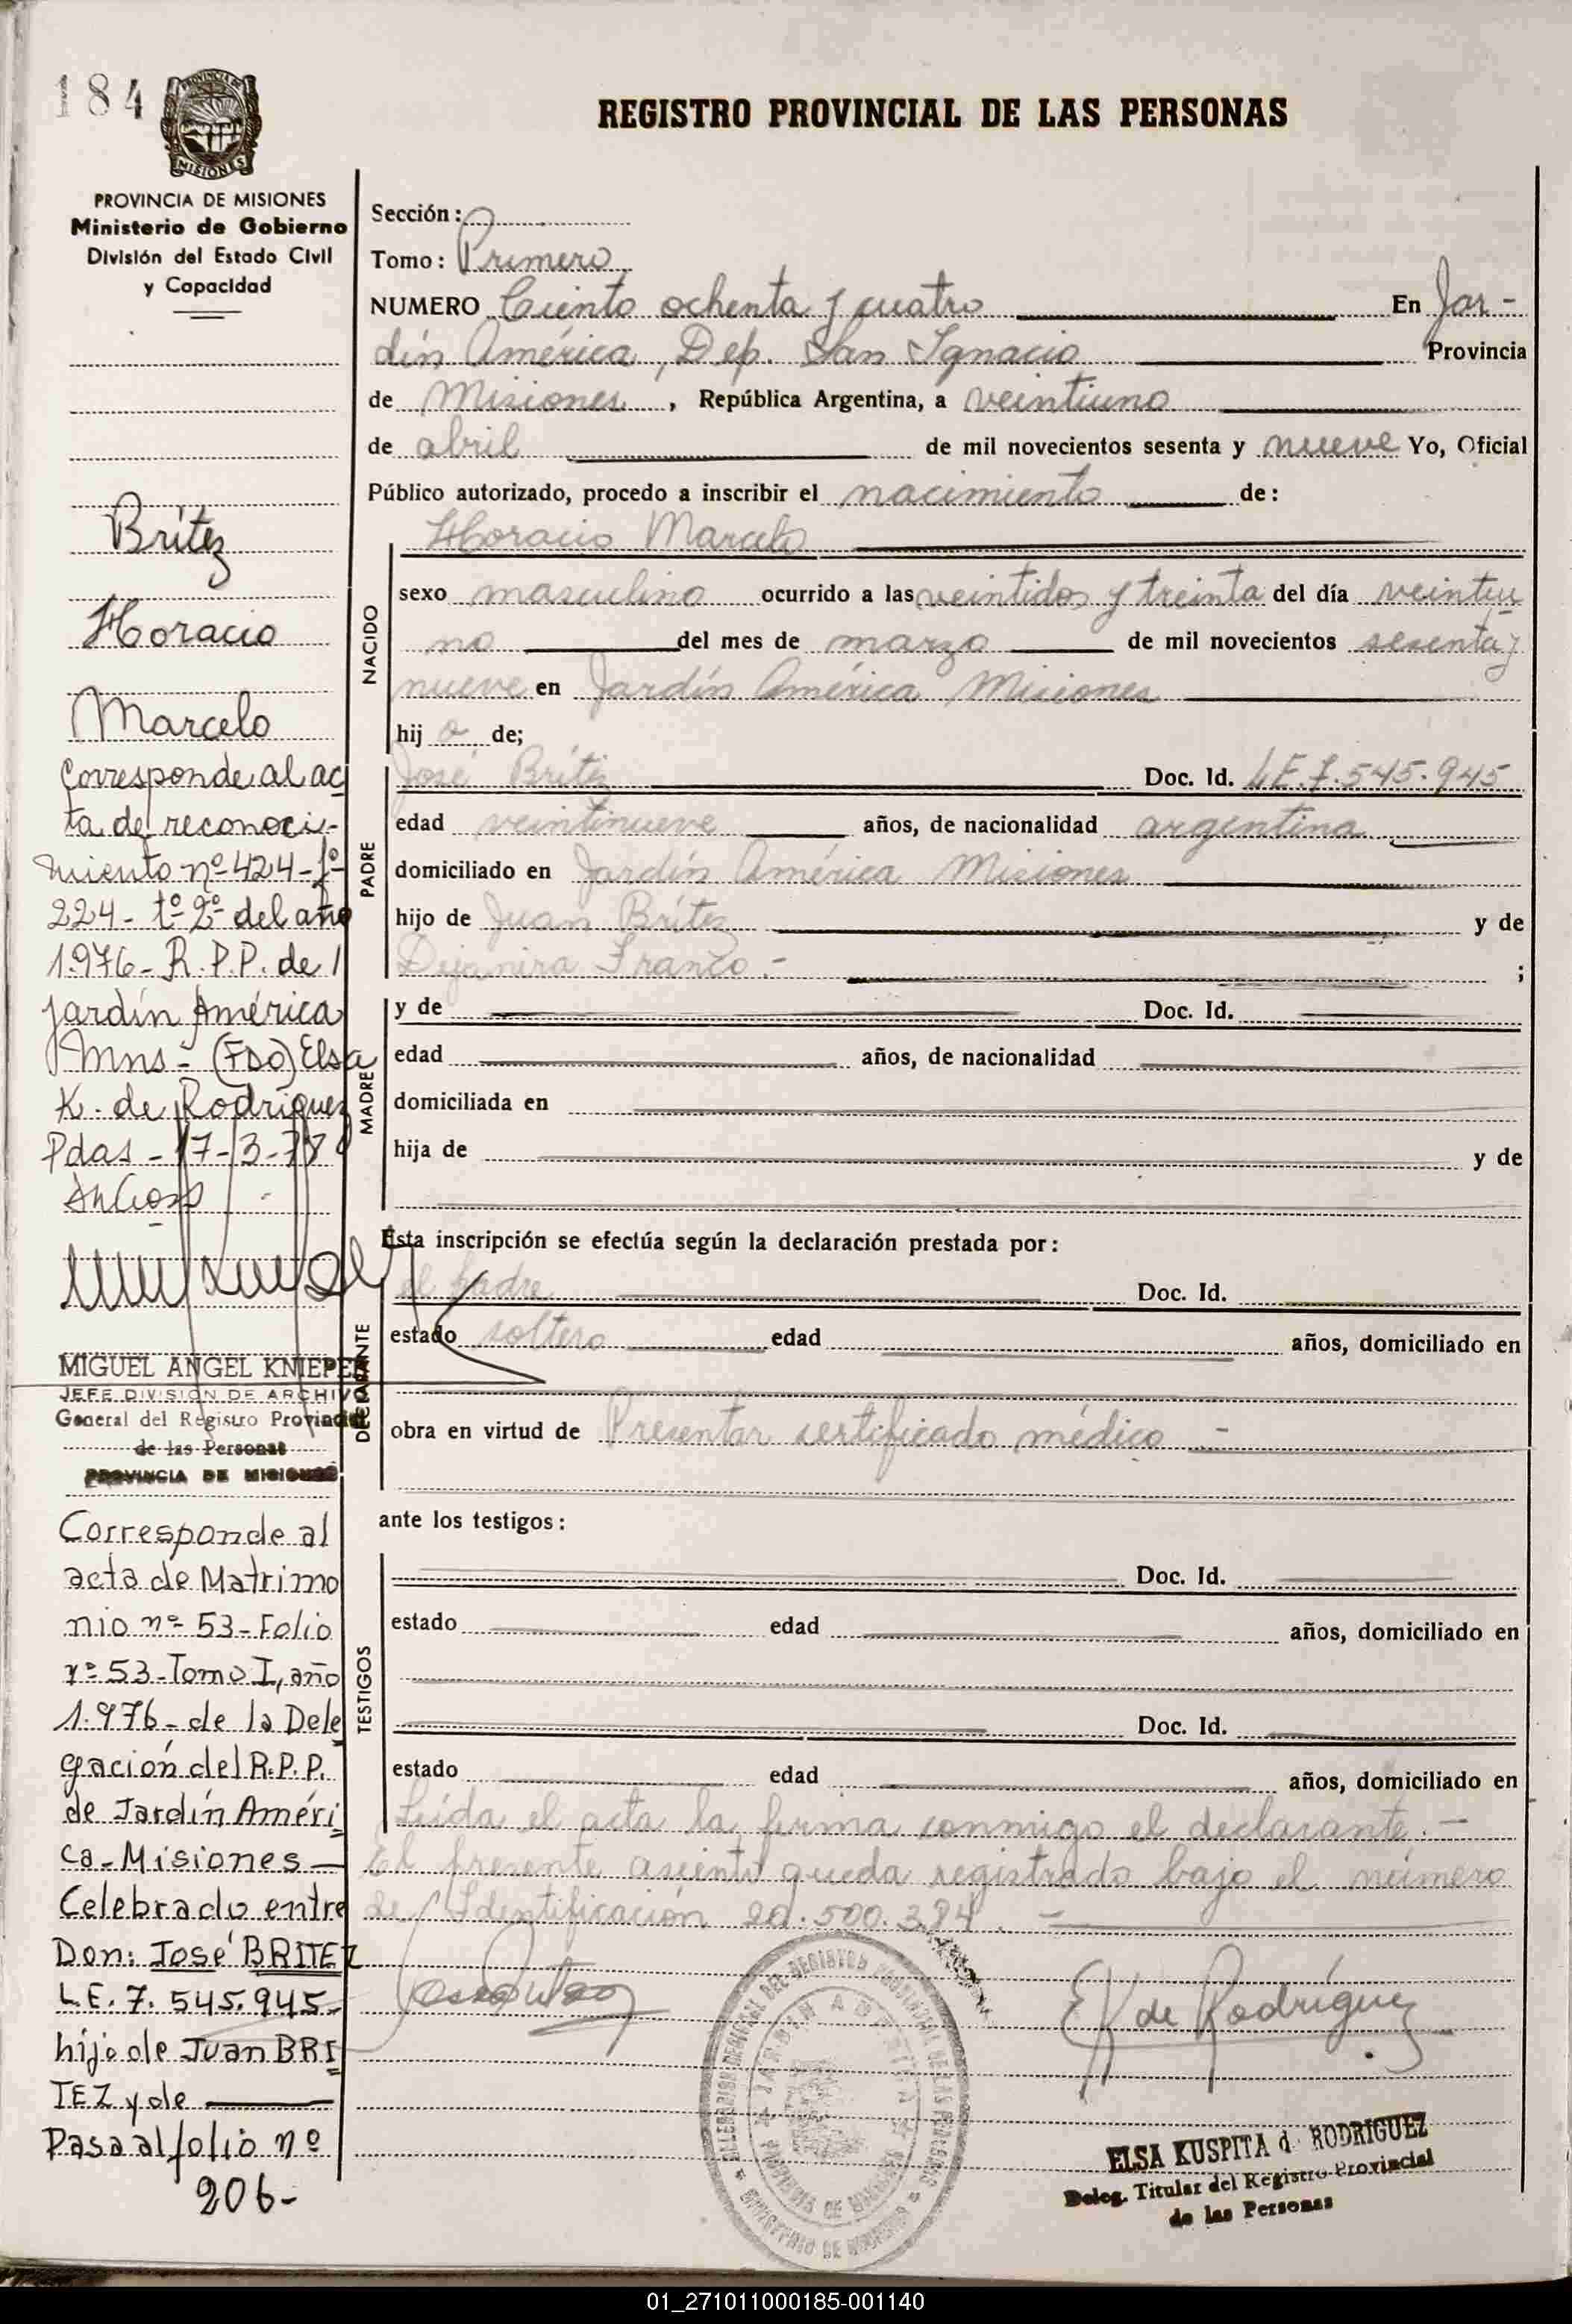 184
PROVINCIA DE MISIONES
Ministerio de Gobierno
División del Estado Civil
y Capacidad
Britez
Horacio
Marcelo
Corresponde al ac
ta de reconoci-
miento nº 424- fº
224- tº 2º del año
1.976- R.P.P. de /
Jardín América
Mns- (FDO) Elsa
K. de Rodriguez
Pdas - 17-3-78
MIGUEL ANGEL KNIEPER
JEFE DIVISION DE ARCHIVO
General del Registro Provincial
de las Personas
PROVINCIA DE MISIONES
Corresponde al
acta de Matrimo
nio nº 53-Folio
nº 53-Tomo I, año
1.976- de la Dele
gación del R.P.P.
de Jardín Améri
ca-Misiones—
Celebrado entre
Don: José BRITEZ
L.E. 7.545.945-
hijo de Juan BRI
TEZ y de
Pasa al folio nº
206-
REGISTRO PROVINCIAL DE LAS PERSONAS
Sección:
Tomo: Primero
NUMERO Ciento ochenta y cuatro En Jar-
dín América, Dep. San Ignacio Provincia
de Misiones, República Argentina, a veintiuno
de abril de mil novecientos sesenta y nueve Yo, Oficial
Público autorizado, procedo a inscribir el nacimiento de:
Horacio Marcelo
NACIDO
sexo masculino ocurrido a las veintidos y treinta del día veintiu
no del mes de marzo de mil novecientos sesenta y
nueve en Jardín América Misiones
hij o de;
PADRE
José Brítez Doc. Id. L.E. 7.545.945
edad veintinueve años, de nacionalidad argentina
domiciliado en Jardín América Misiones
hijo de Juan Brítez y de
Dejanira Franco.- ;
MADRE
y de Doc. Id.
edad años, de nacionalidad
domiciliada en
hija de y de
Esta inscripción se efectúa según la declaración prestada por:
DECLARANTE
el padre Doc. Id.
estado soltero edad años, domiciliado en
obra en virtud de Presentar certificado médico -
ante los testigos:
TESTIGOS
Doc. Id.
estado edad años, domiciliado en
Doc. Id.
estado edad años, domiciliado en
Leída el acta la firma conmigo el declarante.-
El presente asiento queda registrado bajo el número
de Identificación 20.500.384. -
E K de Rodríguez
JARDIN AMERICA
PROVINCIA DE MISIONES
MINISTERIO DE GOBIERNO
ELSA KUSPITA d. RODRIGUEZ
Deleg. Titular del Registro Provincial
de las Personas
01_271011000185-001140